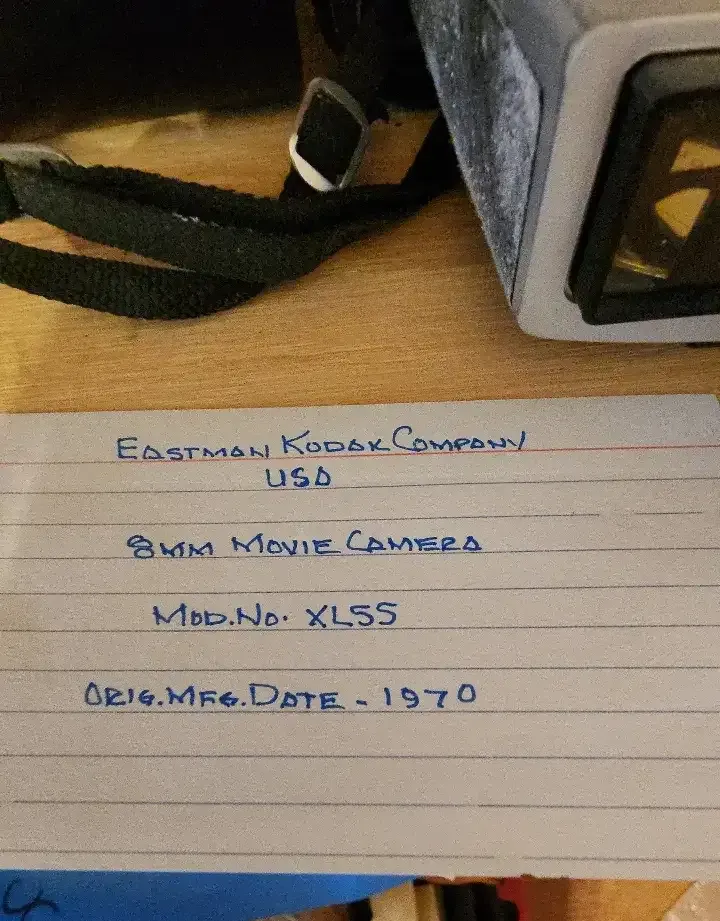 EASTMAN KODAK COMPANY
USA
8MM MOVIE CAMERA
MOD.NO. XL55
ORIG.MFG.DATE - 1970